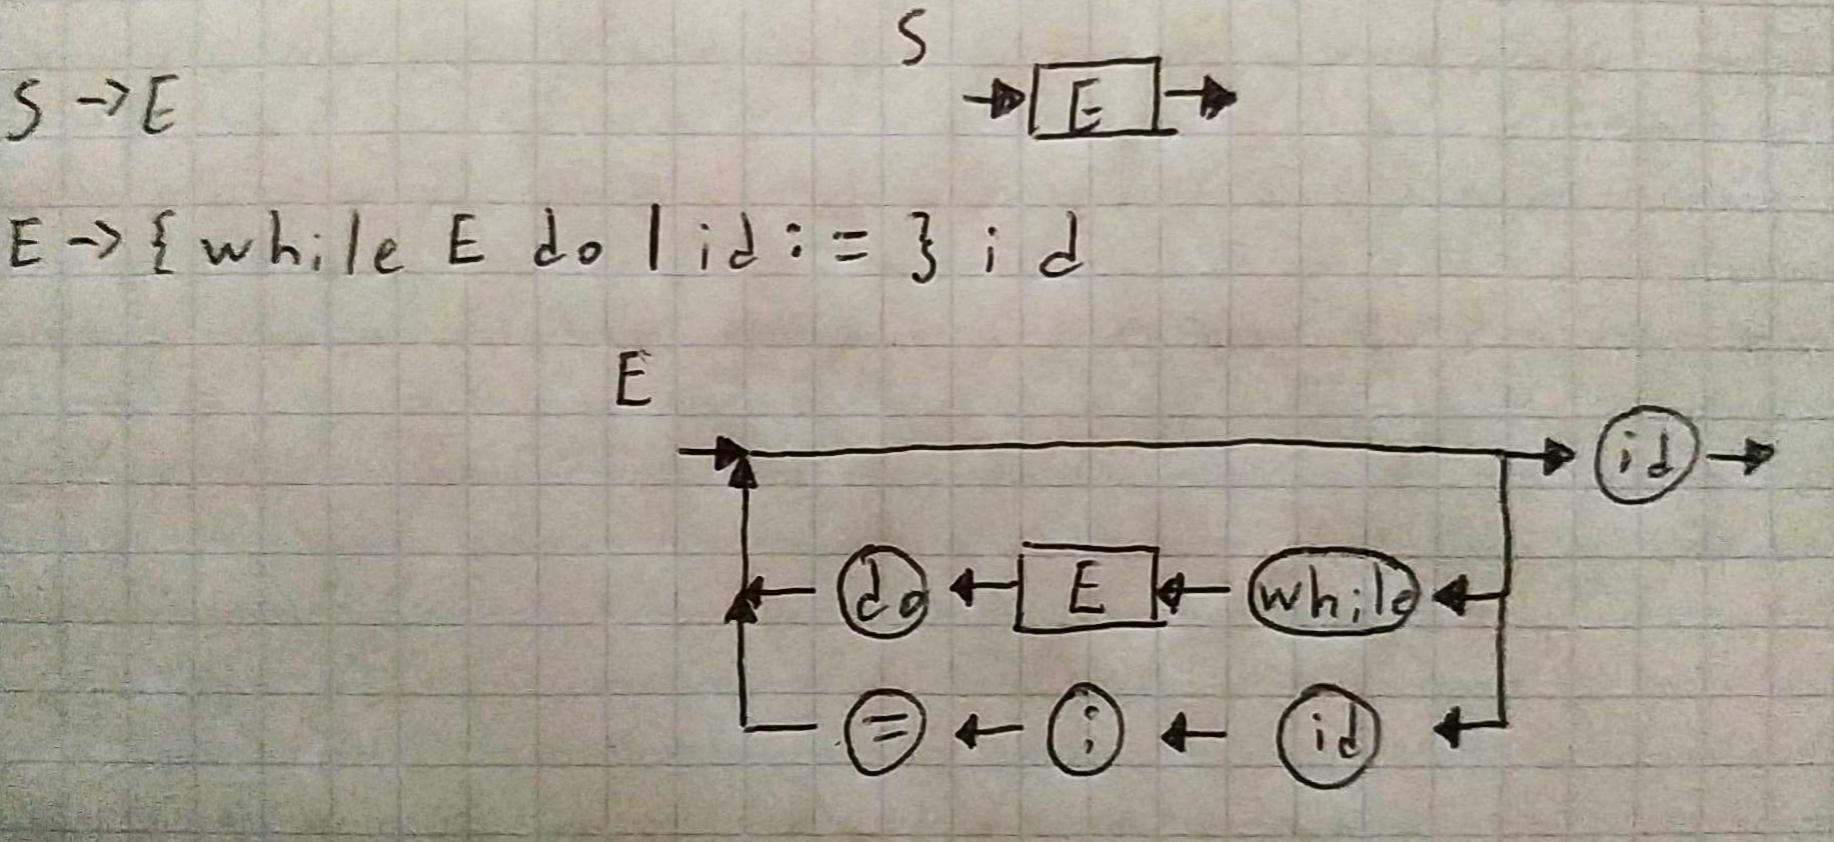 S
S → E
E
E → { while E do | id := } id
E
id
do E while
= ; id